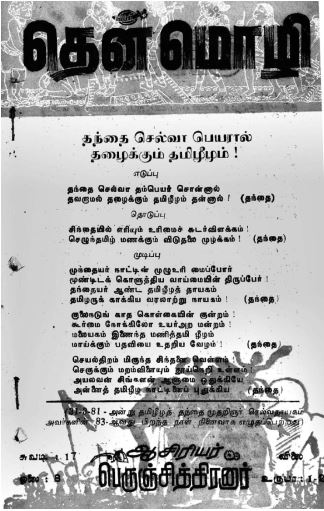 தென்மொழி
தந்தை செல்வா பெயரால்
தழைக்கும் தமிழீழம் !
எடுப்பு
தந்தை செல்வா தம்பெயர் சொன்னால்
தவறாமல் தழைக்கும் தமிழீழம் தன்னால் ! (தந்தை)
தொடுப்பு
சிந்தையில் எரியும் உரிமைச் சுடர்விளக்கம் !
செழுந்தமிழ் மணக்கும் விடுதலை முழக்கம் ! (தந்தை)
முடிப்பு
முந்தையர் நாட்டின் முழுஉரி மைப்போர்
மூண்டிடக் கொளுத்திய வாய்மையின் திருப்பேர் !
தந்தையர் ஆண்ட தமிழீழத் தாயகம்
தமிழருக் காக்கிய வரலாற்று நாயகம் ! (தந்தை)
குலைநடுங் காத கொள்கையின் குன்றம் !
கூர்மை நோக்கிலோ உயர்அற மன்றம் !
மலையகம் இணைந்த மணித்தமி ழீழம்
மாய்க்கும் பதவியை உதறிய வேழம் ! (தந்தை)
செயல்திறம் மிகுந்த சிந்தனை வெள்ளம் !
செருக்கும் மறவினையும் தூர்த்தெறி உள்ளம் !
அயலவன் சிங்களன் ஆளுமை ஒதுக்கியே
அன்னைத் தமிழீழ நாட்டினைப் புதுக்கிய (தந்தை)
(31-3-81 - அன்று தமிழீழத் தந்தை முதறிஞர் செல்வநாயகம்
அவர்களின் 83-ஆவது பிறந்த நாள் நினைவாக எழுதப்பெற்றது)
சுவடி : 17
ஆசிரியர்
விலை
ஓலை : 6
பெருஞ்சித்திரனார்
உருபா : 1-